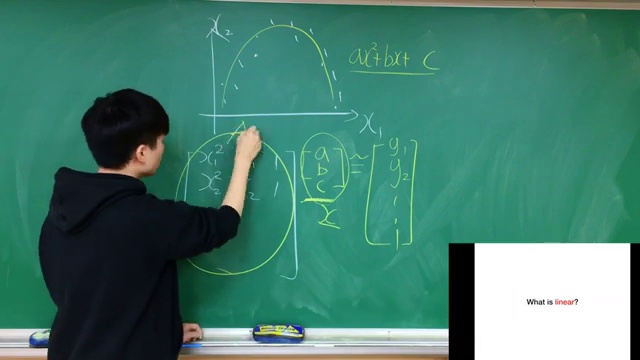 x₂
ax²+bx+ c
x₁
A
x₁² 1
x₂² 2 1
a
b
c
≈
y₁
y₂
x
What is linear?